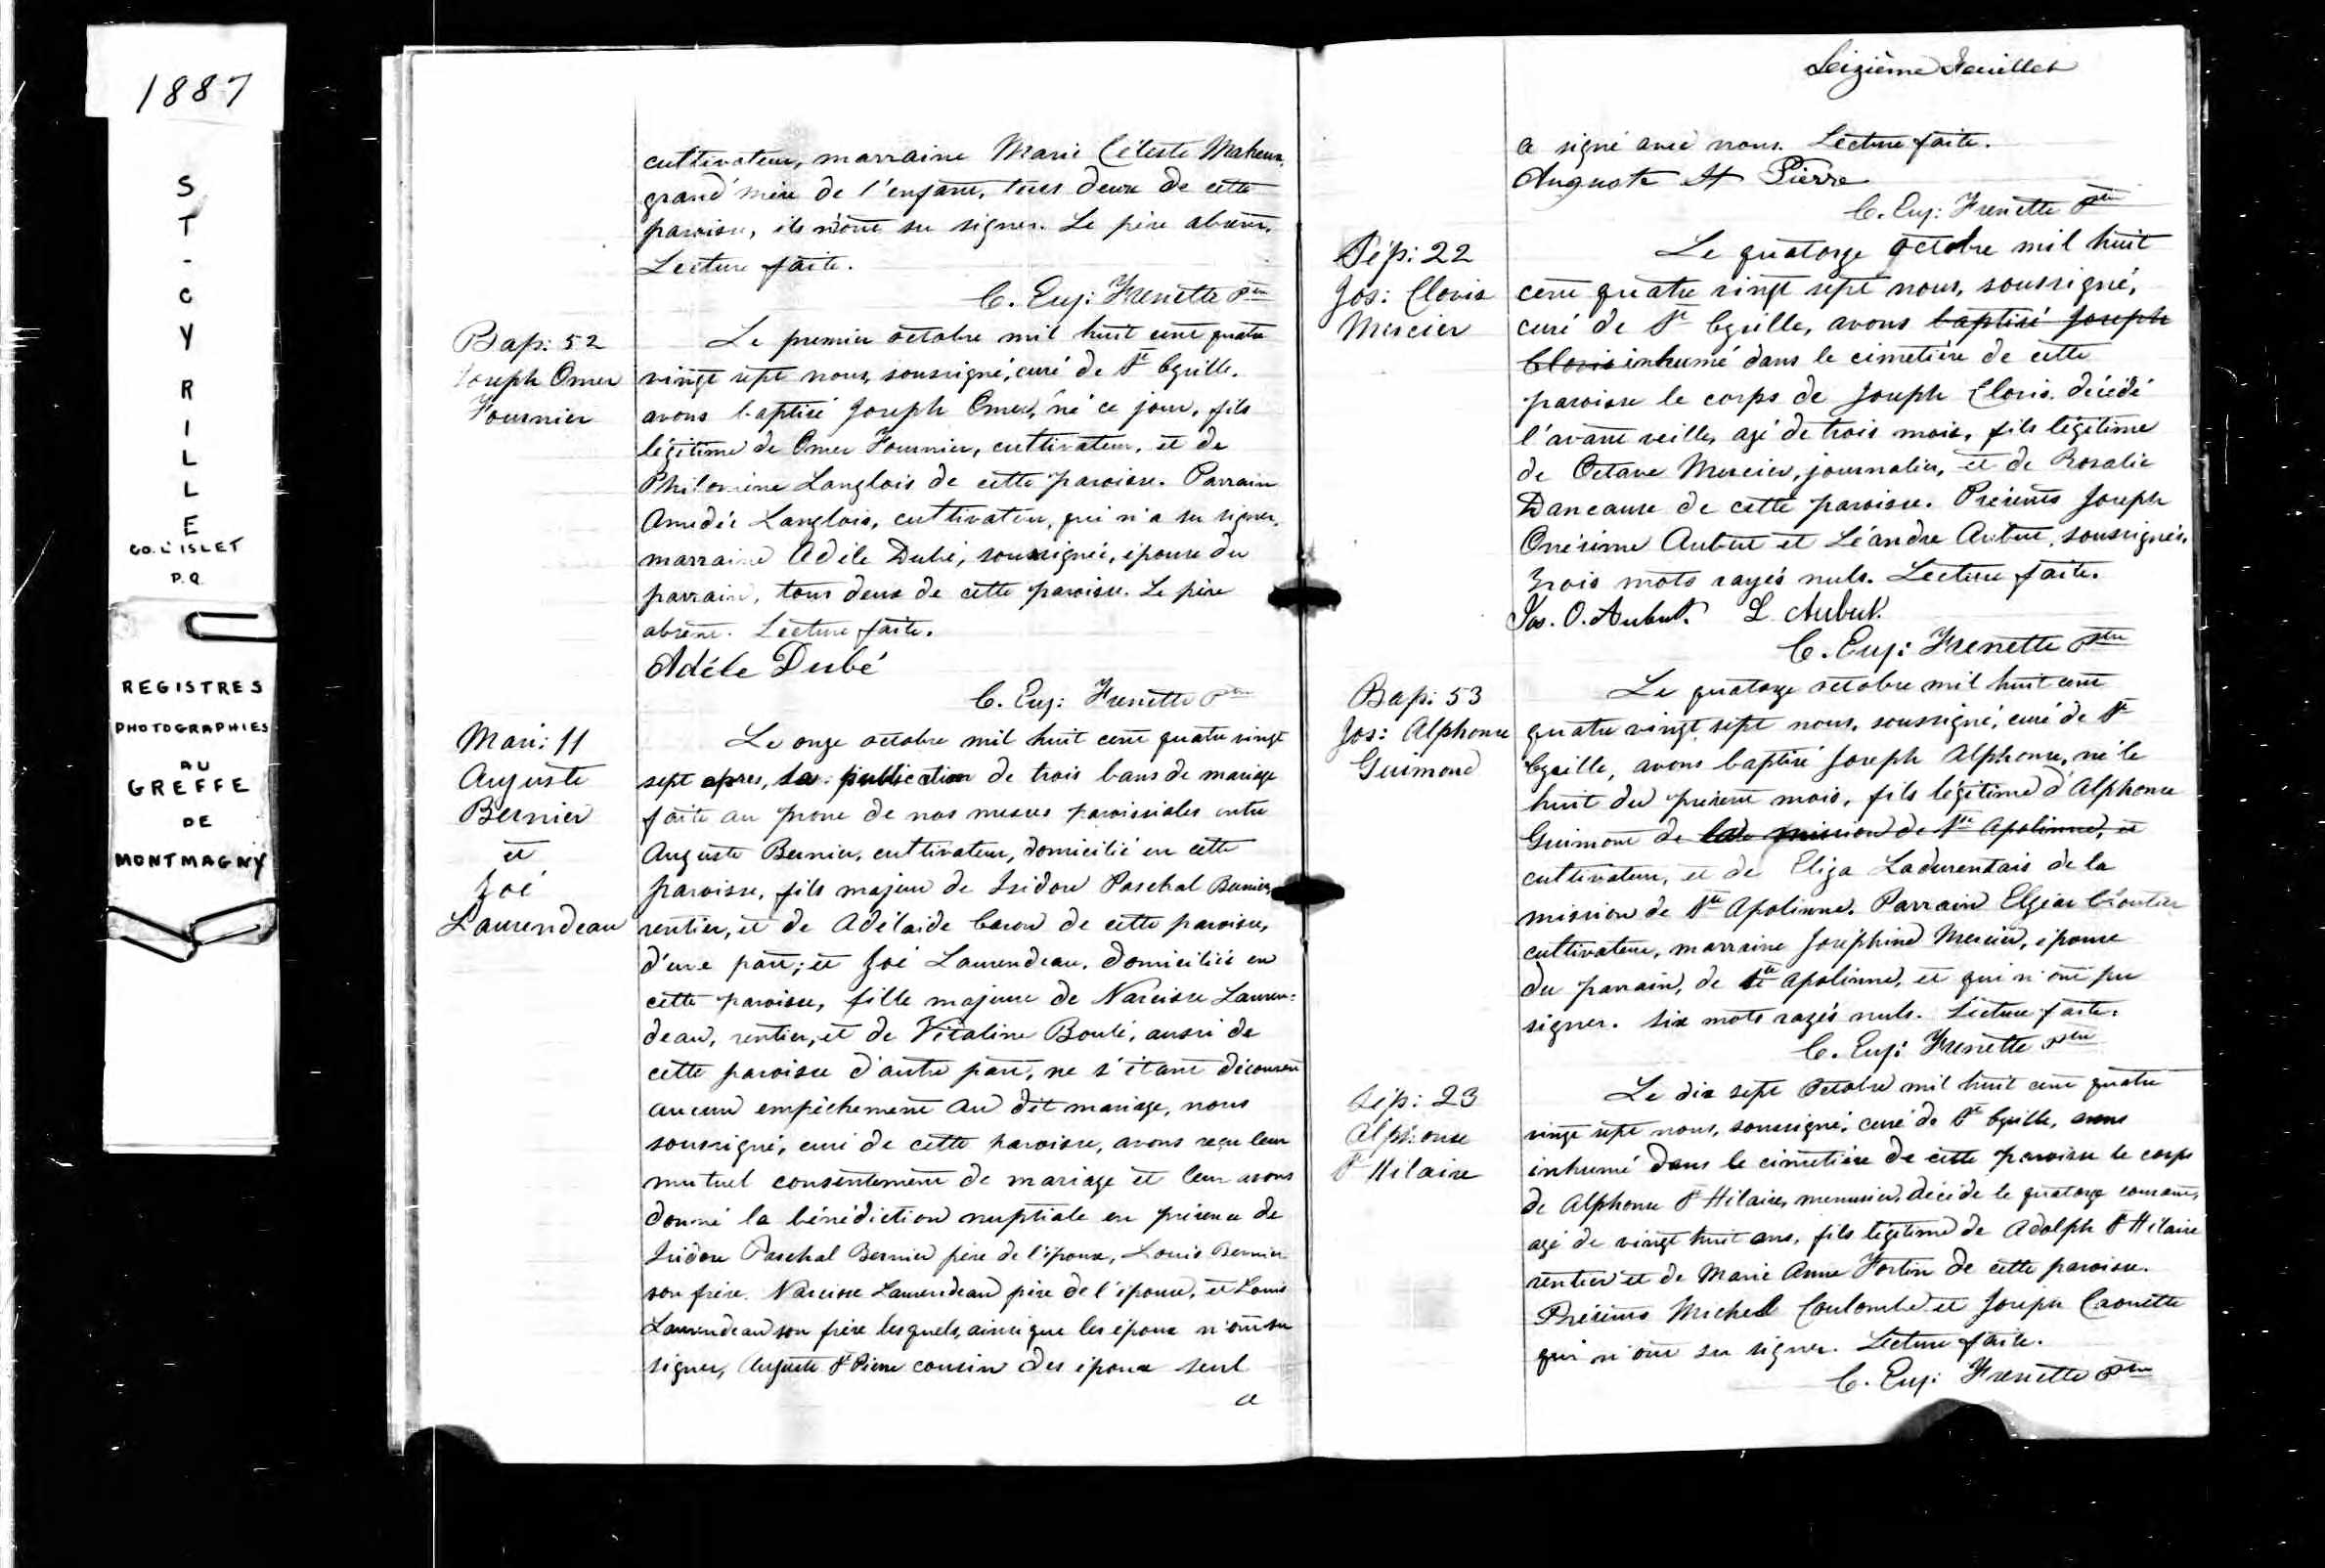 1887
ST-CYRILLE
CO. L'ISLET
P.Q.
REGISTRES
PHOTOGRAPHIES
AU
GREFFE
DE
MONTMAGNY
cultivateur, marraine Marie Céleste Maheux,
grand'mère de l'enfant, tous deux de cette
paroisse, ils n'ont su signer. Le père absent.
Lecture faite.
C. Eug: Frenette Ptre
Bap: 52
Joseph Omer
Fournier
Le premier octobre mil huit cent quatre
vingt sept nous, soussigné, curé de St Cyrille.
avons baptisé Joseph Omer, né ce jour, fils
légitime de Omer Fournier, cultivateur, et de
Philomène Langlois de cette paroisse. Parrain
Amédée Langlois, cultivateur, qui n'a su signer,
marraine Adèle Dubé, soussignée, épouse du
parrain, tous deux de cette paroisse. Le père
absent. Lecture faite.
Adéle Dubé
C. Eug: Frenette Ptre
Mari: 11
Auguste
Bernier
et
Zoé
Laurendeau
Le onze octobre mil huit cent quatre vingt
sept après, la publication de trois bans de mariage
faite au prone de nos messes paroissiales entre
Auguste Bernier, cultivateur, domicilié en cette
paroisse, fils majeur de Isidore Paschal Bernier,
rentier, et de Adélaïde Caron de cette paroisse,
d'une part; et Zoé Laurendeau, domiciliée en
cette paroisse, fille majeure de Narcisse Lauren=
deau, rentier, et de Vitaline Boulé, aussi de
cette paroisse d'autre part, ne s'étant découvert
aucun empêchement au dit mariage, nous
soussigné, curé de cette paroisse, avons reçu leur
mutuel consentement de mariage et leur avons
donné la bénédiction nuptiale en présence de
Isidore Paschal Bernier père de l'époux, Louis Bernier
son frère. Narcisse Laurendeau père de l'épouse, et Louis
Laurendeau son frère lesquels, ainsi que les époux n'ont su
signer, Auguste St Pierre cousin des époux seul
a
Seizième Feuillet
a signé avec nous. Lecture faite.
Auguste St Pierre
C. Eug: Frenette Ptre
Sép: 22
Jos: Clovis
Mercier
Le quatorze octobre mil huit
cent quatre vingt sept nous, soussigné,
curé de St Cyrille, avons baptisé Joseph
Clovis inhumé dans le cimetière de cette
paroisse le corps de Joseph Clovis, décédé
l'avant veille, agé de trois mois, fils légitime
de Octave Mercier, journalier, et de Rosalie
Dancause de cette paroisse. Présents Joseph
Onésime Aubut et Léandre Aubut, soussignés.
Trois mots rayés nuls. Lecture faite.
Jos. O. Aubut. L. Aubut.
C. Eug: Frenette Ptre
Bap: 53
Jos: Alphonse
Guimond
Le quatorze octobre mil huit cent
quatre vingt sept nous, soussigné, curé de St
Cyrille, avons baptisé Joseph Alphonse, né le
huit du présent mois, fils légitime d'Alphonse
Guimont de la mission de Ste Apolinne, et
cultivateur, et de Eliza Ladurentais de la
mission de Ste Apolinne. Parrain Elzéar Cloutier
cultivateur, marraine Joséphine Mercier, épouse
du parrain, de Ste Apolinne, et qui n'ont pu
signer. Six mots rayés nuls. Lecture faite.
C. Eug: Frenette Ptre
Sép: 23
Alphonse
St Hilaire
Le dix sept Octobre mil huit cent quatre
vingt sept nous, soussigné, curé de St Cyrille, avons
inhumé dans le cimetière de cette paroisse le corps
de Alphonse St Hilaire, menuisier, décédé le quatorze courant,
agé de vingt huit ans, fils légitime de Adolph St Hilaire
rentier et de Marie Anne Fortin de cette paroisse.
Présents Michel Coulombe et Joseph Caouette
qui n'ont su signer. Lecture faite.
C. Eug: Frenette Ptre